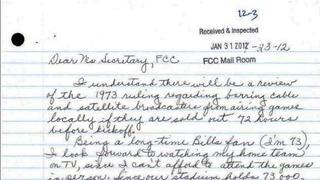 12-3
Received & Inspected
JAN 31 2012 -23-12
FCC Mail Room
Dear Ms Secretary, FCC
I understand there will be a review
of the 1973 ruling regarding berring cable
and satellite broadcasters from airing games
locally if they are sold out 72 hours
before kickoff.
Being a long-time Bills fan (I'm 73),
I look forward to watching my home team
on TV, since I can't afford to attend the games
in person. Since our stadium holds 73 000